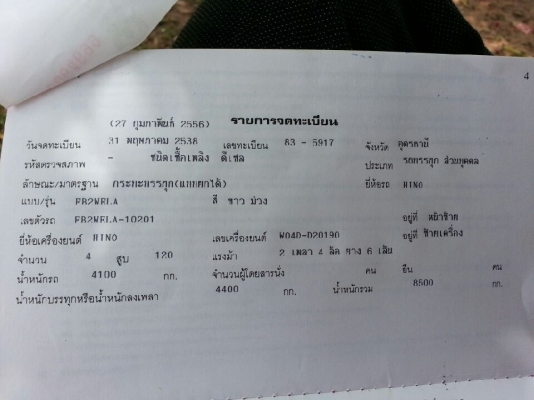 4
(27 กุมภาพันธ์ 2556) รายการจดทะเบียน
วันจดทะเบียน 31 พฤษภาคม 2538 เลขทะเบียน 83 - 5917 จังหวัด อุดรธานี
รหัสตรวจสภาพ - ชนิดเชื้อเพลิง ดีเซล ประเภท รถบรรทุก ส่วนบุคคล
ลักษณะ/มาตรฐาน กระบะบรรทุก(แบบยกได้) ยี่ห้อรถ HINO
แบบ/รุ่น FB2WELA สี ขาว ม่วง
เลขตัวรถ FB2WELA-10201 อยู่ที่ หน้าซ้าย
ยี่ห้อเครื่องยนต์ HINO เลขเครื่องยนต์ W04D-D20190 อยู่ที่ ซ้ายเครื่อง
จำนวน 4 สูบ 120 แรงม้า 2 เพลา 4 ล้อ ยาง 6 เส้น
น้ำหนักรถ 4100 กก. จำนวนผู้โดยสารนั่ง คน ยืน คน
น้ำหนักบรรทุกหรือน้ำหนักลงเพลา 4400 กก. น้ำหนักรวม 8500 กก.